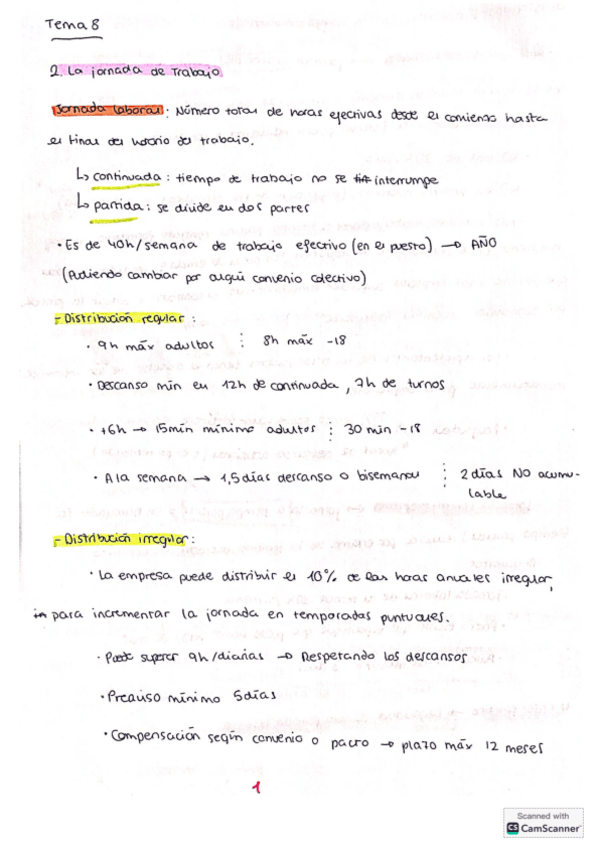 Tema 8
2. La jornada de Trabajo
Jornada laboral: Número total de horas efectivas desde el comienzo hasta
el final del horario del trabajo.
↳ continuada: tiempo de trabajo no se interrumpe
↳ partida: se divide en dos partes
• Es de 40h/semana de trabajo efectivo (en el puesto) → AÑO
(Pudiendo cambiar por algún convenio colectivo)
- Distribución regular:
• 9h máx adultos ⋮ 8h máx -18
• Descanso mín en 12h de continuada, 7h de turnos
• +6h → 15min mínimo adultos ⋮ 30 min -18
• A la semana → 1,5 días descanso o bisemanal ⋮ 2 días NO acumu-
lable
- Distribución irregular:
• La empresa puede distribuir el 10% de las horas anuales irregular,
para incrementar la jornada en temporadas puntuales.
• Puede superar 9h/diarias → Respetando los descansos
• Preaviso mínimo 5 días
• Compensación según convenio o pacto → plazo máx 12 meses
1
Scanned with
CS CamScanner